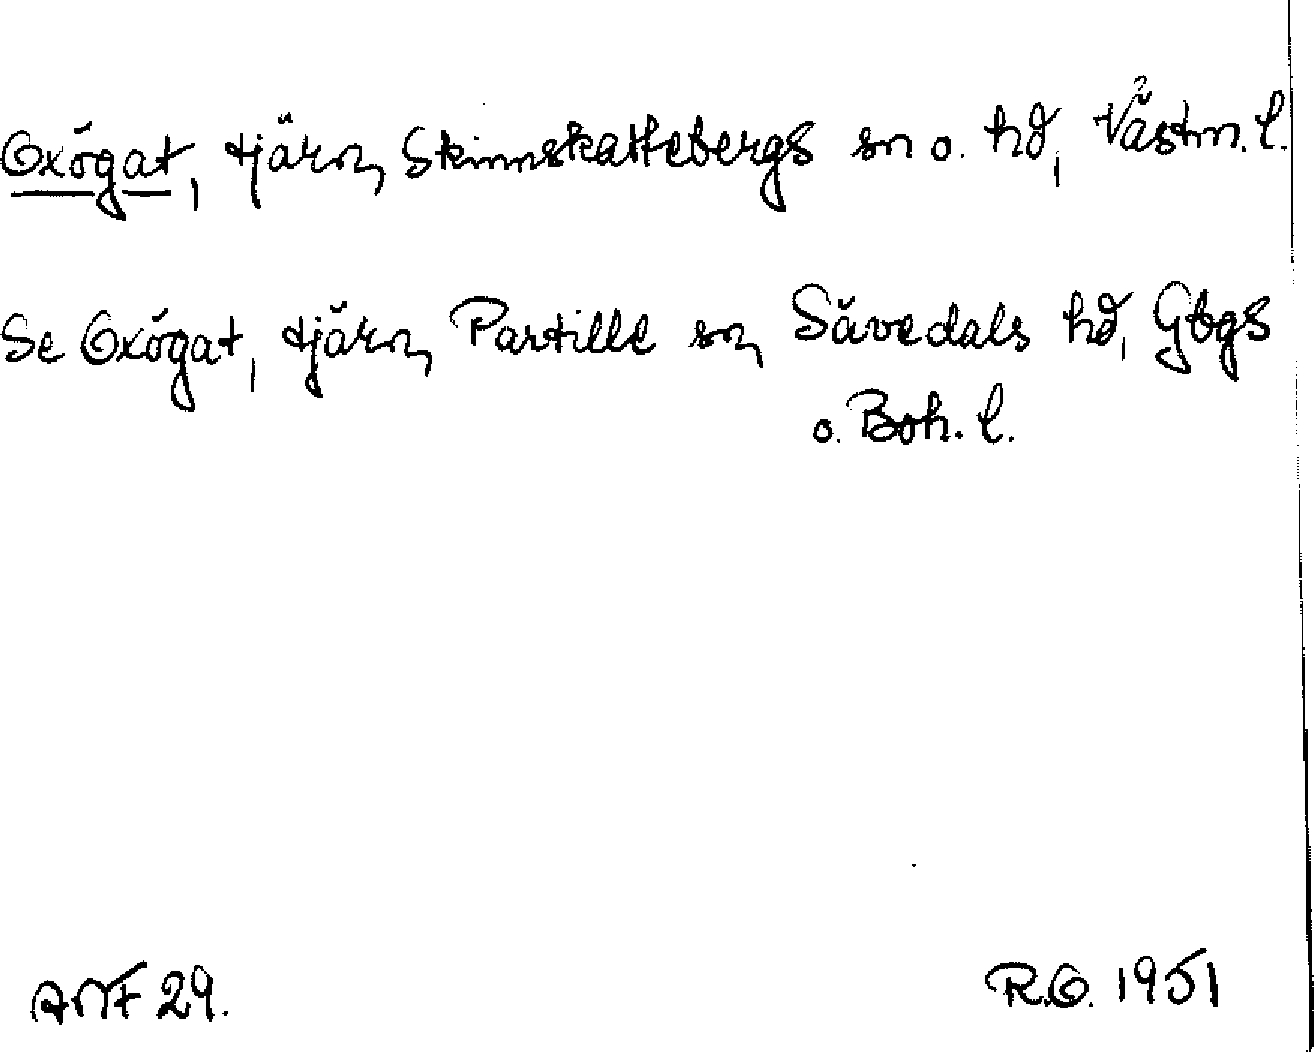 Oxögat, tjärn, Skinnskattebergs sn o. hd, Västm. l.
Se Oxögat, tjärn, Partille sn, Sävedals hd, Gbgs
o. Boh. l.
ANF 29.
R.O. 1951